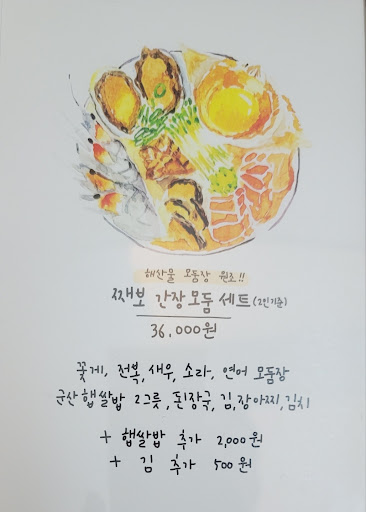 해산물 모둠장 원조!!
째보 간장모둠 세트(2인기준)
36,000원
꽃게, 전복, 새우, 소라, 연어 모둠장
군산 햅쌀밥 2그릇, 된장국, 김, 장아찌, 김치
+ 햅쌀밥 추가 2,000원
+ 김 추가 500원